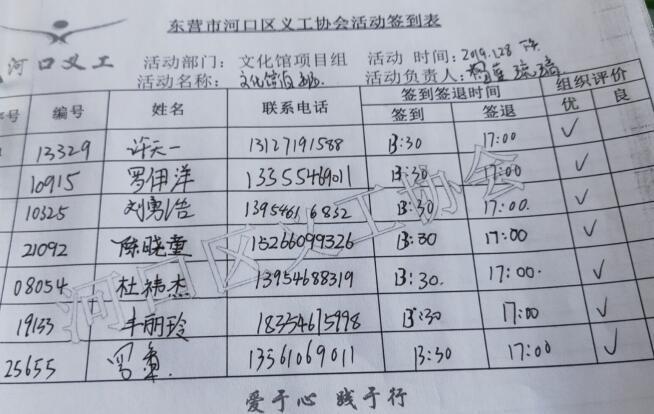 东营市河口区义工协会活动签到表
河口义工 活动部门：文化馆项目组 活动 时间：2019.1.28 下午
活动名称： 文化馆 活动负责人：
编号 姓名 联系电话 签到签退时间 组织评价
签到 签退 优 良
13329 许天一 13127191588 13:30 17:00 ✓
10915 罗伊洋 13355469011 13:30 17:00 ✓
10325 刘勇浩 13954616832 13:30 17:00 ✓
21092 陈晓童 15266099326 13:30 17:00 ✓
08054 杜祎杰 13954688319 13:30 17:00 ✓
19133 丰丽玲 18354675998 13:30 17:00 ✓
25655 13561069011 13:30 17:00 ✓
河口区义工协会
爱于心 践于行